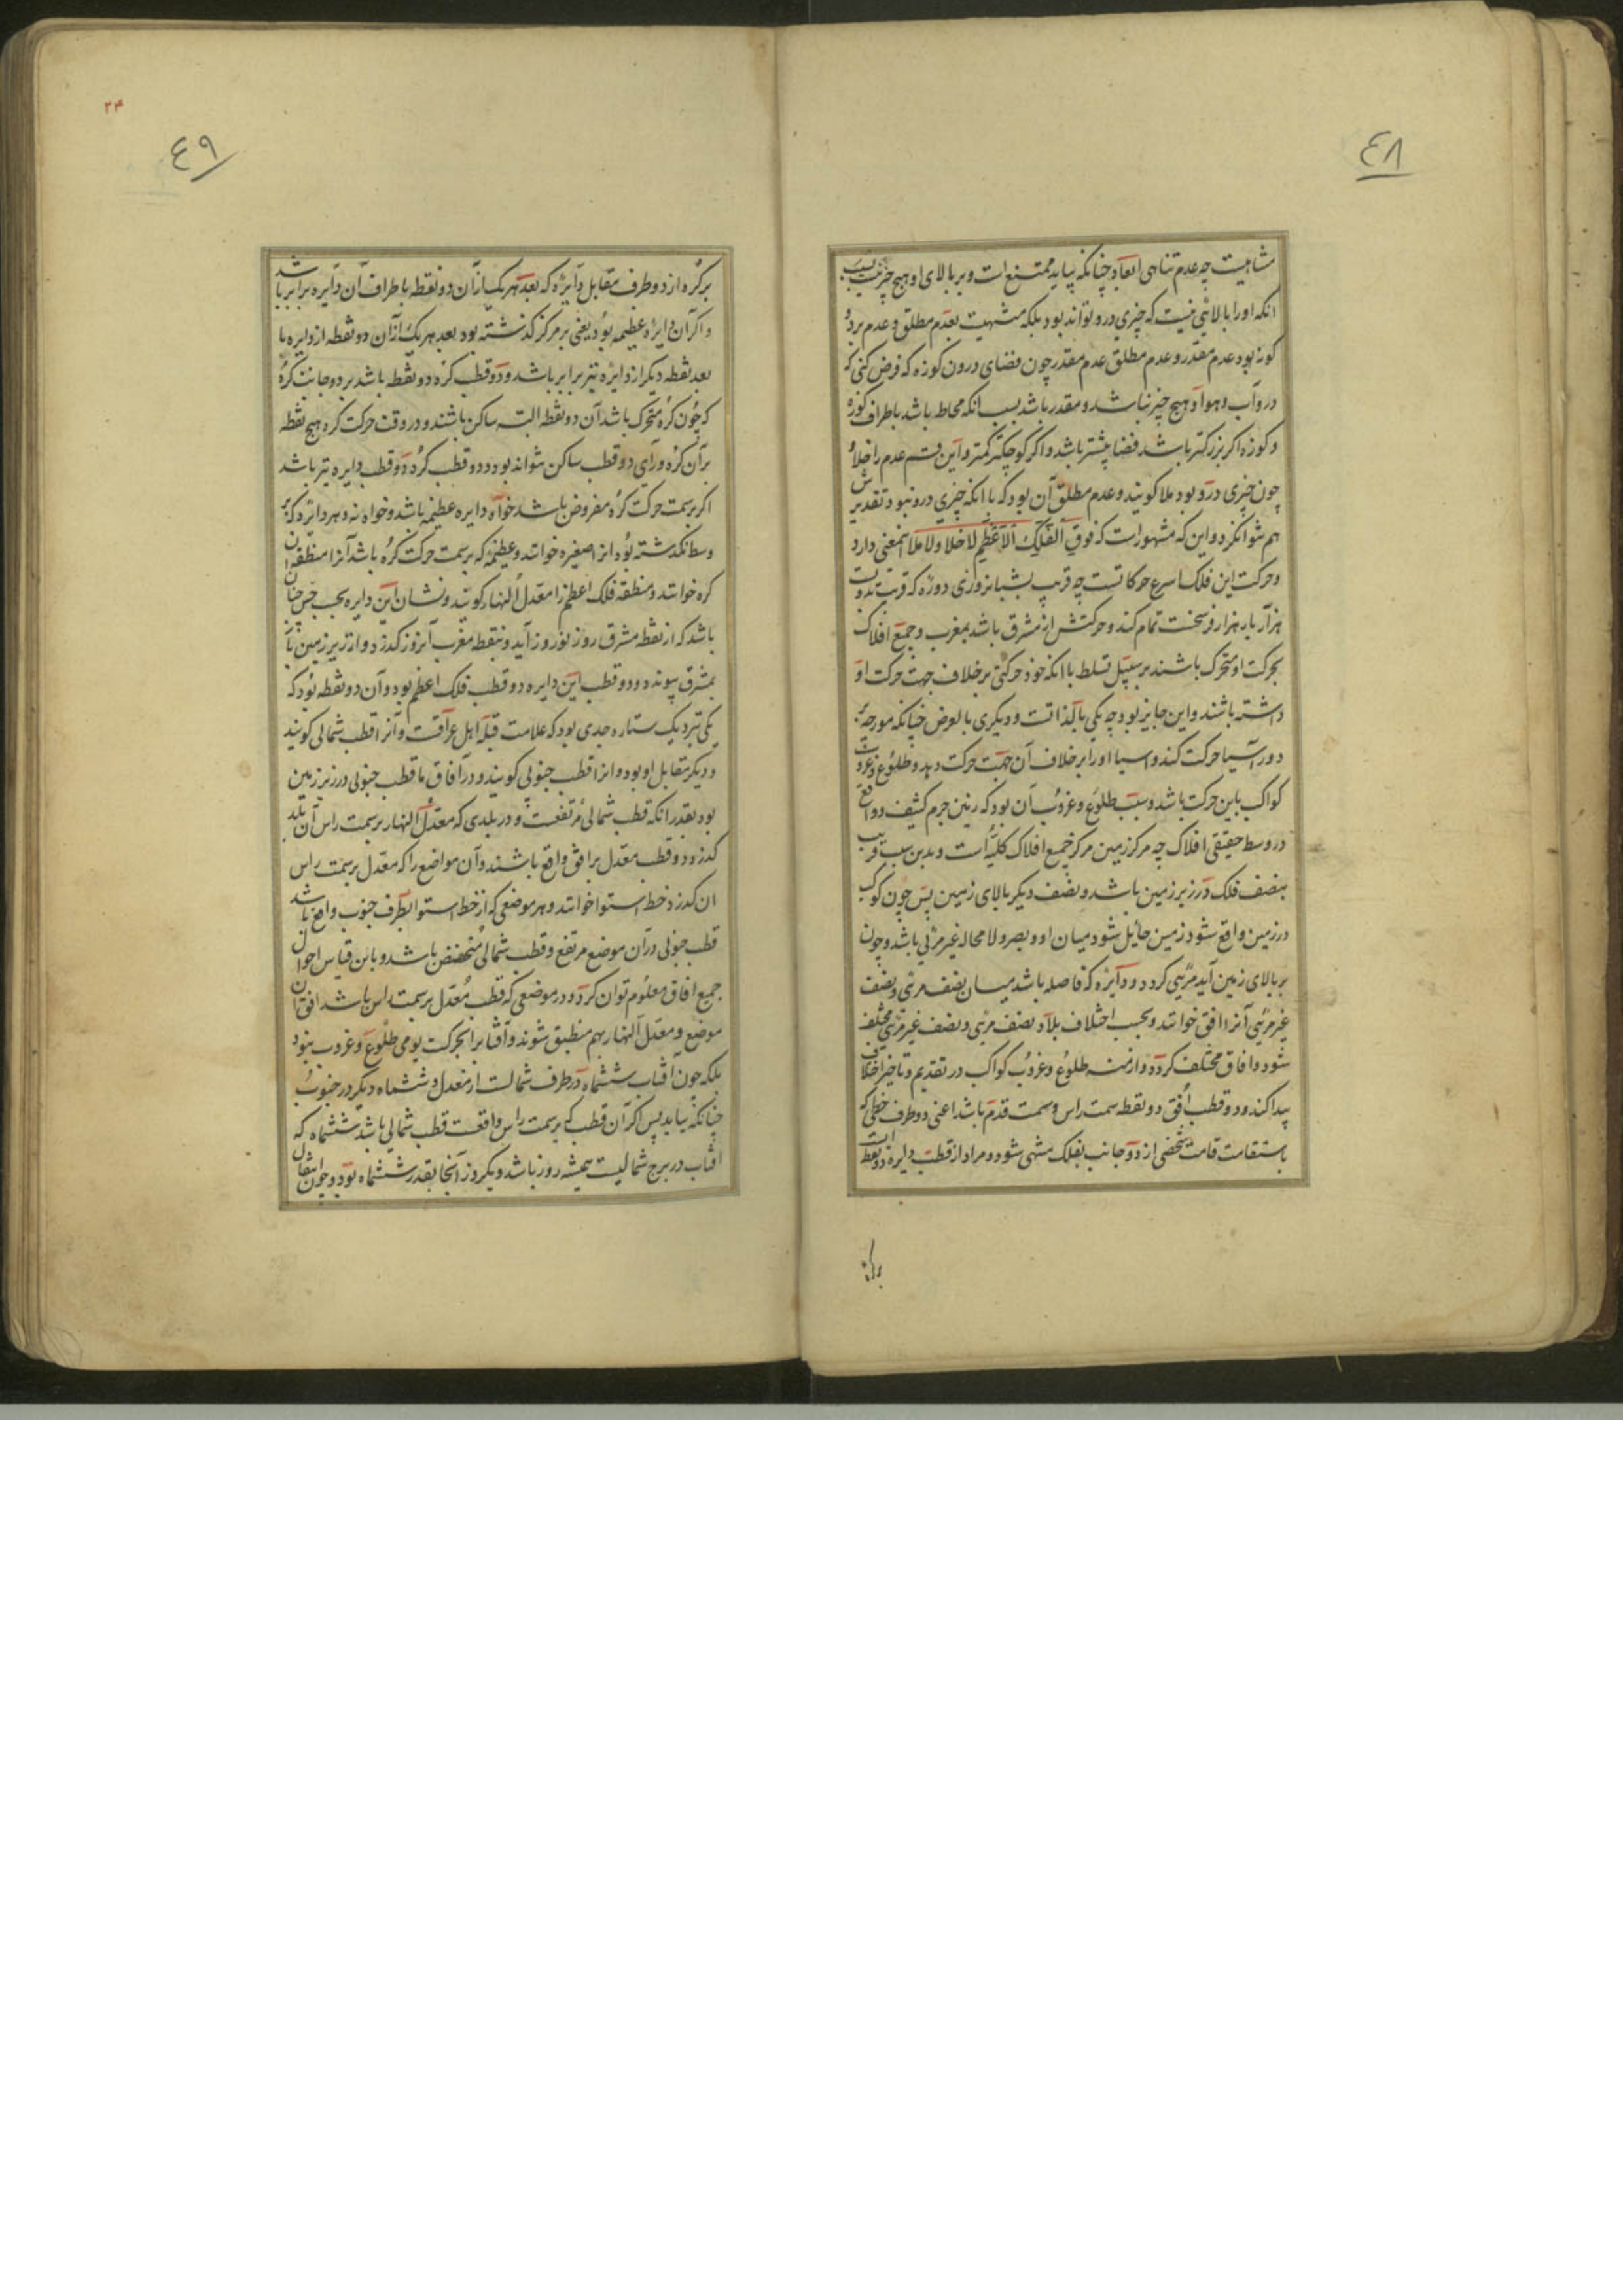 ٤٨
متناهیست چه عدم تناهی ابعاد چنانکه بیاید ممتنع است و بر بالای او هیچ چیز نیست بسبب
انکه اورا بالائی نیست که چیزی درو تواند بود بلکه منتهیست بعدم مطلق و عدم بر دو
کونه بود عدم مقدر و عدم مطلق عدم مقدر چون فضای درون کوزه که فرض کنی که
درو آب و هوا و هیچ چیز نباشد و مقدر باشد بسبب انکه محاط باشد باطراف کوزه
و کوزه اکر بزرکتر باشد فضا بیشتر باشد و اکر کوچکتر کمتر و این قسم عدم را خلا و
چون چیزی درو بود ملا کویند و عدم مطلق آن بود که با انکه چیزی درو نبود تقدیرش
هم نتوانکرد و این که مشهور است که فوق الفلک الاعظم لا خلا ولا ملا اینمعنی دارد
و حرکت این فلک اسرع حرکاتست چه قریب بشبانروزی دوره که قریب
هزار بار هزار فرسخست تمام کند و حرکتش از مشرق باشد بمغرب و جمیع افلاک
بحرکت او متحرک باشند بر سبیل تسلط با انکه خود حرکتی بر خلاف جهت حرکت او
داشته باشند و این جایز بود چه یکی بالذاتست و دیکری بالعرض چنانکه مورچه بر
دور آسیا حرکت کند و اسیا اورا بر خلاف آن جهت حرکت دهد و طلوع و غروب
کواکب باین حرکت باشد و سبب طلوع و غروب آن بود که زمین جرم کثیف و واقع
در وسط حقیقی افلاک چه مرکز زمین مرکز جمیع افلاک کلیه است و بدین سبب قریب
بنصف فلک در زیر زمین باشد و نصف دیکر بالای زمین پس چون کوکب
در زمین واقع شود زمین حائل شود میان او و بصر و لا محاله غیر مرئی باشد و چون
بر بالای زمین آید مرئی کردد و دایره که فاصله باشد میان نصف مرئی و نصف
غیر مرئی آنرا افق خوانند و بحسب اختلاف بلاد نصف مرئی و نصف غیر مرئی مختلف
شود و افاق مختلف کردد و ازمنه طلوع و غروب کواکب در تقدیم و تاخیر اختلاف
پیدا کند و دو قطب افق دو نقطه سمت راس و سمت قدم باشد اعنی دو طرف خطی که
باستقامت قامت شخصی از دو جانب بفلک منتهی شود و مراد از قطب دایره دو نقطه است
٢٤
٤٩
بر کره از دو طرف مقابل دایره که بعد هر یک از آن دو نقطه باطراف آن دایره برابر باشد
و اکر آن دایره عظیمه بود یعنی بر مرکز کذشته بود بعد هر یک از آن دو نقطه از دایره با
بعد نقطه دیکر از دایره نیز برابر باشد و دو قطب کره دو نقطه باشد بر دو جانب کره
که چون کره متحرک باشد آن دو نقطه البته ساکن باشند و در وقت حرکت کره هیچ نقطه
بر آن کره ورای دو قطب ساکن نتواند بود و دو قطب کره دو قطب دایره نیز باشد
اکر بر سمت حرکت کره مفروض باشد خواه دایره عظیمه باشد و خواه نه و هر دایره که بر
وسط نکذشته بود انرا صغیره خوانند و عظیمه که بر سمت حرکت کره باشد آنرا منطقه آن
کره خوانند و منطقه فلک اعظم را معدل النهار کویند و نشان این دایره بحسب حس چنان
باشد که از نقطه مشرق روز نوروز آید و بنقطه مغرب آنروز کذرد و از زیر زمین باز
بمشرق پیوندد و دو قطب این دایره دو قطب فلک اعظم بود و آن دو نقطه بود که
یکی نزدیک ستاره جدی بود که علامت قبله اهل عراقست و آنرا قطب شمالی کویند
و دیکر مقابل او بود و انرا قطب جنوبی کویند و در آفاق ما قطب جنوبی در زیر زمین
بود بقدر انکه قطب شمالی مرتفعست و در بلدی که معدل النهار بر سمت راس آن بلد
کذرد دو قطب معدل بر افق واقع باشند و آن مواضع را که معدل بر سمت راس
ان کذرد خط استوا خوانند و هر موضعی که از خط استوا بطرف جنوب واقع باشد
قطب جنوبی در آن موضع مرتفع و قطب شمالی منخفض باشد و باین قیاس احوال
جمیع افاق معلوم توان کرد و در موضعی که قطب معدل بر سمت راس باشد افق آن
موضع و معدل النهار بهم منطبق شوند و آفتاب را بحرکت یومی طلوع و غروب نبود
بلکه چون آفتاب ششماه در طرف شمالست از معدل و ششماه دیکر در جنوب
چنانکه بیاید پس اکر آن قطب که بر سمت راس واقعست قطب شمالی باشد ششماه که
افتاب در برج شمالیست همیشه روز باشد و یکروز آنجا بقدر ششماه بود و چون انتقال